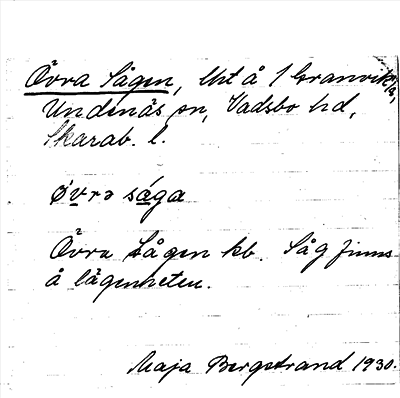 Övra Sågen, lht å 1 Granvik,
Undenäs sn, Vadsbo hd,
Skarab. l.
ö́vrə sága
Övra Sågen kb. Såg finns
å lägenheten.
Maja Bergstrand 1930.